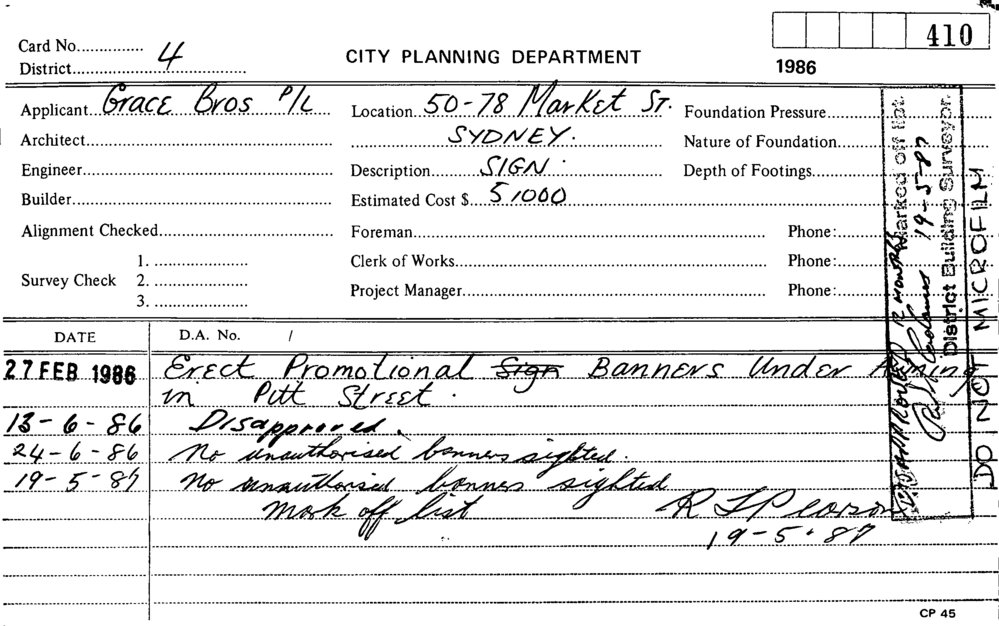 410
Card No............... 4
District
CITY PLANNING DEPARTMENT
1986
Applicant Grace Bros P/L
Location 50-78 Market St.
Foundation Pressure
Architect
SYDNEY.
Nature of Foundation
Engineer
Description SIGN
Depth of Footings
Builder
Estimated Cost $ 51000
Alignment Checked
Foreman
Phone:
Clerk of Works
Phone:
Survey Check 1.
2.
3.
Project Manager
Phone:
DATE
D.A. No. /
27 FEB 1986 Erect Promotional Sign Banners Under Awning
in Pitt Street.
13-6-86 Disapproved.
24-6-86 No unauthorised banners sighted.
19-5-87 No unauthorised banners sighted
Mark off list
19-5-87
Marked off list.
19-5-87
District Building Surveyor.
DISAPPROVED 12 MONTHS
DO NOT MICROFILM
CP 45